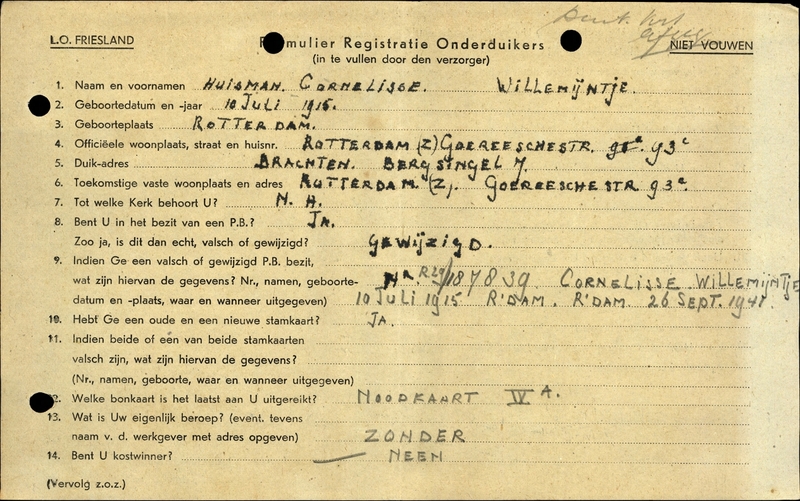 L.O. FRIESLAND
Formulier Registratie Onderduikers
(in te vullen door den verzorger)
NIET VOUWEN
1. Naam en voornamen HUISMAN. CORNELISSE. WILLEMIJNTJE.
2. Geboortedatum en -jaar 10 JULI 1915.
3. Geboorteplaats ROTTERDAM.
4. Officiëele woonplaats, straat en huisnr. ROTTERDAM (Z) GOEREESCHESTR. 93c
5. Duik-adres DRACHTEN. BERGSINGEL 7.
6. Toekomstige vaste woonplaats en adres ROTTERDAM. (Z). GOEREESCHESTR 93c.
7. Tot welke Kerk behoort U? N. H.
8. Bent U in het bezit van een P.B.? JA.
Zoo ja, is dit dan echt, valsch of gewijzigd? GEWIJZIGD.
9. Indien Ge een valsch of gewijzigd P.B. bezit,
wat zijn hiervan de gegevens? Nr., namen, geboorte- NR. R29/187839 CORNELISSE WILLEMIJNTJE
datum en -plaats, waar en wanneer uitgegeven) 10 JULI 1915 R'DAM. R'DAM. 26 SEPT. 1941
10. Hebt Ge een oude en een nieuwe stamkaart? JA.
11. Indien beide of een van beide stamkaarten
valsch zijn, wat zijn hiervan de gegevens?
(Nr., namen, geboorte, waar en wanneer uitgegeven)
12. Welke bonkaart is het laatst aan U uitgereikt? NOODKAART IV A.
13. Wat is Uw eigenlijk beroep? (event. tevens
naam v. d. werkgever met adres opgeven) ZONDER
14. Bent U kostwinner? — NEEN
(Vervolg z.o.z.)